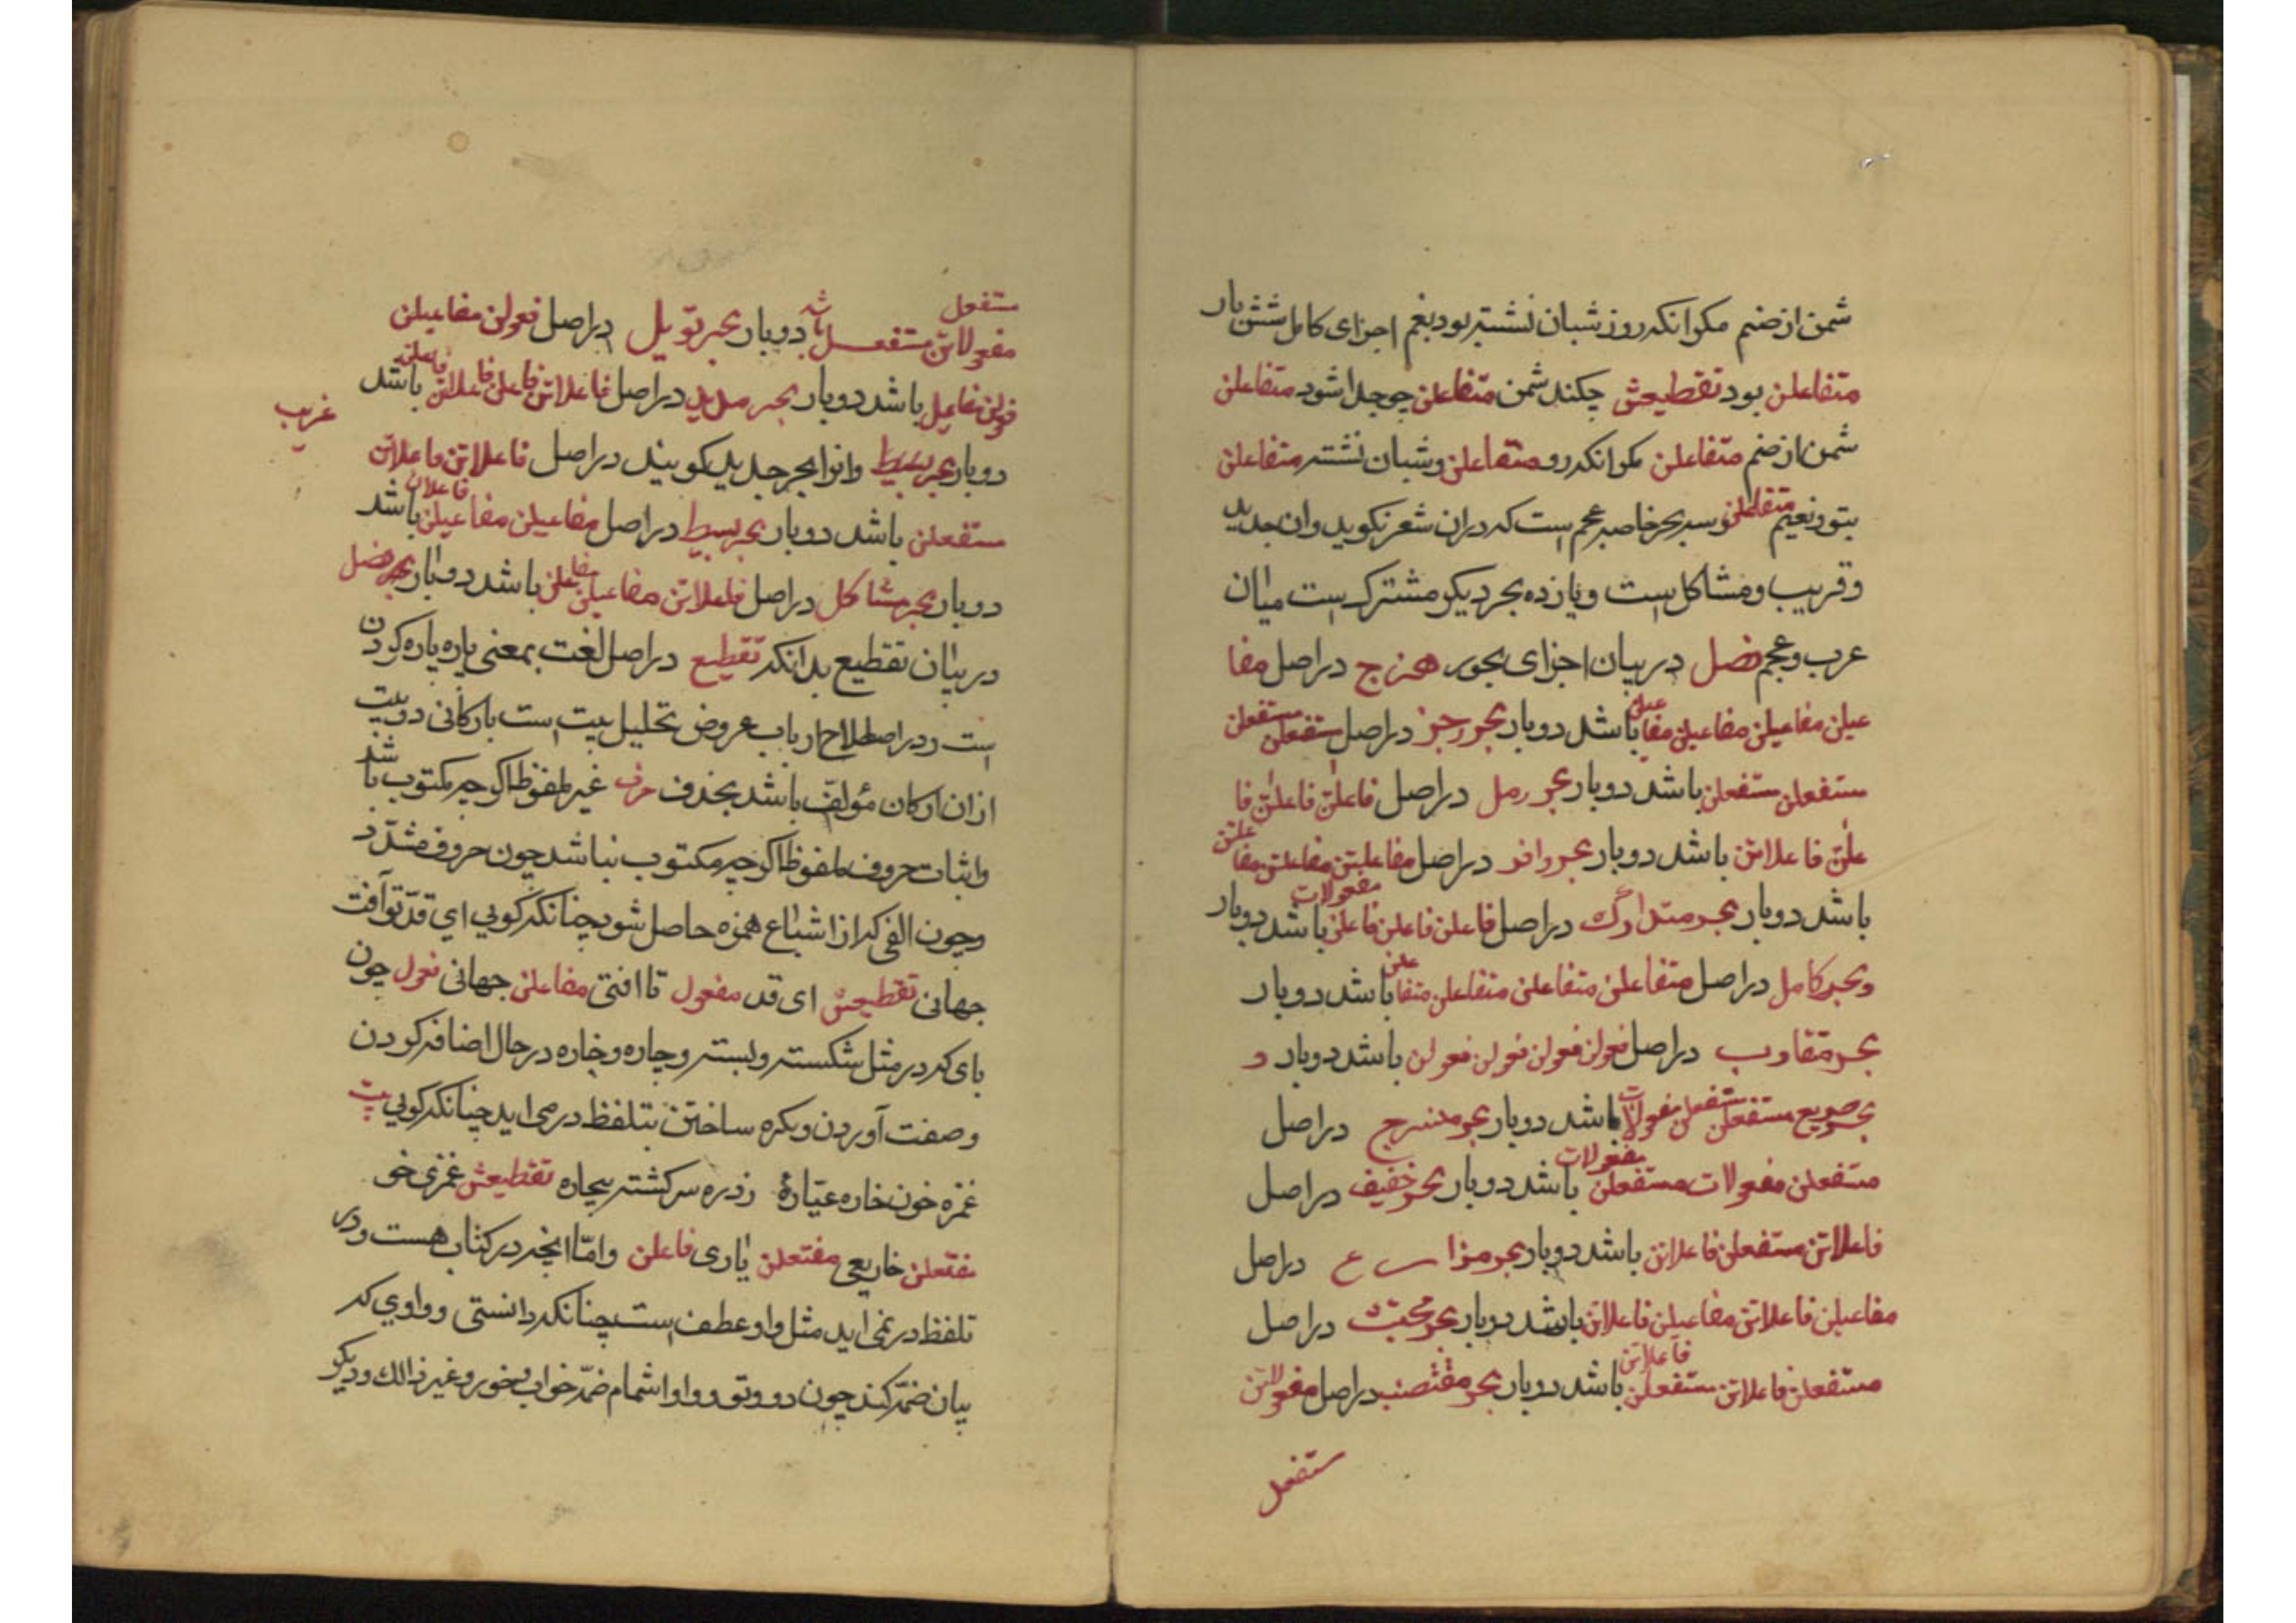 شمن از ضم مکو انکه روز شبان نشسته بود بغم اجزای کامل شش بار
متفاعلن بود تقطیعش چکند شمن متفاعلن چو جدا شود متفاعلن
شمن از ضم متفاعلن مکو انکه رو متفاعلن و شبان نشسته متفاعلن
بتو و نعیم متفاعلن وسه بحر خاصه عجم است که دران شعر نکوید وان جدید
وقریب ومشاکل است ویازده بحر دیکر مشترک است میان
عرب وعجم فصل در بیان اجزای بحور هزج در اصل مفا
عیلن مفاعیلن مفاعیلن مفا عیلن باشد دوبار بحر رجز در اصل مستفعلن مستفعلن
مستفعلن مستفعلن باشد دوبار بحر رمل در اصل فاعلاتن فاعلاتن فا
علاتن فاعلاتن باشد دوبار بحر وافر در اصل مفاعلتن مفاعلتن مفا علتن
باشد دوبار بحر متدارک در اصل فاعلن فاعلن فاعلن مفعولات باشد دوبار
وبحر کامل در اصل متفاعلن متفاعلن متفاعلن متفا علن باشد دوبار
بحر متقارب در اصل فعولن فعولن فعولن فعولن باشد دوبار و
بحر صریع مستفعلن مستفعلن مفعولات باشد دوبار بحر منسرج در اصل
مستفعلن مفعولات مستفعلن مفعولات باشد دوبار بحر خفیف در اصل
فاعلاتن مستفعلن فاعلاتن باشد دوبار بحر مزارع در اصل
مفاعیلن فاعلاتن مفاعیلن فاعلاتن باشد دوبار بحر مجتث در اصل
مستفعلن فاعلاتن مستفعلن فاعلاتن باشد دوبار بحر مقتصنب در اصل مفعولاتن
مستفعل
مستفعل
مفعولاتن مستفعل باشد دوبار بحر تویل در اصل فعولن مفاعیلن
فولن مفاعیل باشد دوبار بحر مدید در اصل فاعلاتن فاعلن فاعلاتن فاعلن باشد
غریب
دوبار بحر بسیط وانوا بحر جدید کویند در اصل فاعلاتن فاعلاتن
مستفعلن باشد دوبار بحر بسیط در اصل مفاعیلن مفاعیلن فاعلان باشد
دوبار بحر مشاکل در اصل فاعلاتن مفاعیلن مفاعلن باشد دوبار بحر فصل
در بیان تقطیع بدانکه تقطیع در اصل لغت بمعنی پاره پاره کردن
است ودر اصطلاح ارباب عروض تحلیل بیت است بارکانی دو بیت
ازان ارکان مؤلف باشد بحذف حرف غیر لمفوظ اکرچه مکتوب باشد
واثبات حروف ملفوظ اکرچه مکتوب نباشد چون حروف مشدد
وچون الفی که از اشباع همزه حاصل شود چنانکه کویی ای قد تو آفت
جهانی تقطیعش ای قد مفعول تا افتی مفاعلن جهانی فعول چون
یای که در مثل شکسته وبسته وچاره وخاره در حال اضافه کردن
وصفت آوردن ونکره ساختن بتلفظ در می اید چنانکه کویی بیت
غمزه خون خاره عیارۀ زذره سرکشته بیچاره تقطیعش غمزی خو
مفتعلن خاریعی مفتعلن یاری فاعلن وامّا انچه در کتاب هست ودر
تلفظ در نمی اید مثل واو عطف است چنانکه دانستی وواوی که
بیان ضمّه کند چون دو وتو وواو اشمام ضمّه خواب وخور وغیر ذالک ودیکر